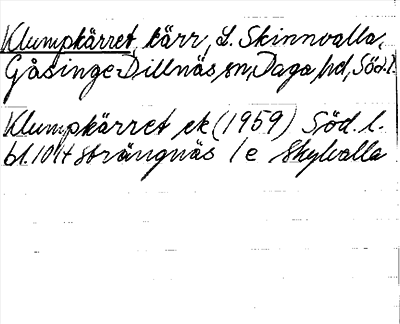 Klumpkärret, kärr, L. Skinnvalla,
Gåsinge-Dillnäs sn, Daga hd, Söd.l.
Klumpkärret ek (1959) Söd. l.
bl. 10 it Strängnäs 1e Skylvalla